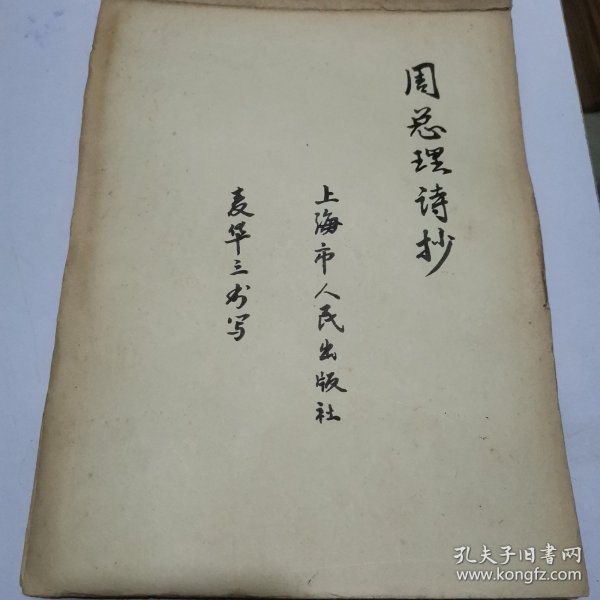 周总理诗抄
上海市人民出版社
麦华三书写
孔夫子旧书网
www.kongfz.com